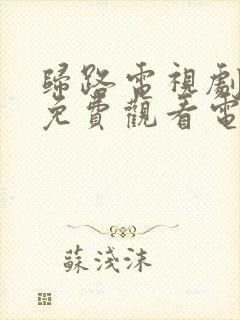 歸路電視劇
免費觀看電
蘇淺沫